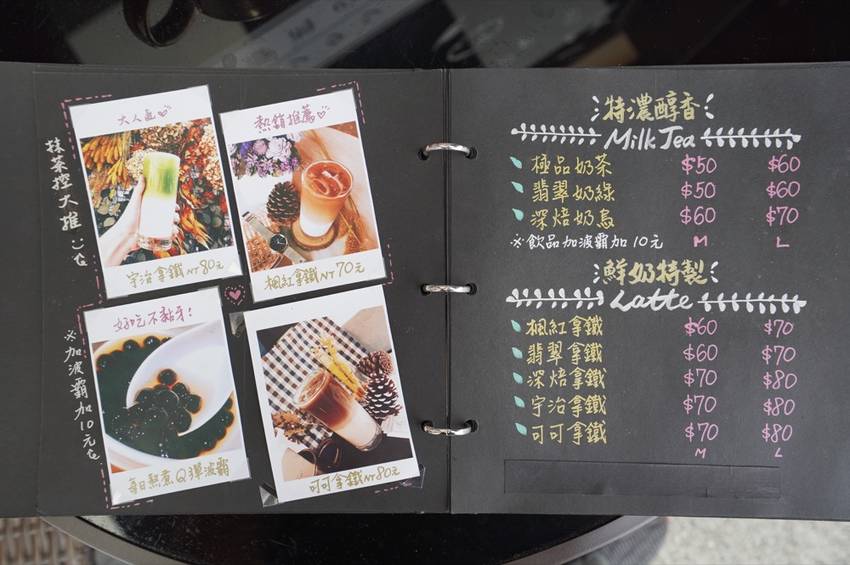 抹茶控大推
大人氣
宇治拿鐵NT80元
熱銷推薦
楓紅拿鐵NT70元
※加波霸加10元
好吃不黏牙!
每日熬煮Q彈波霸
可可拿鐵NT80元
特濃醇香
Milk Tea
極品奶茶 $50 $60
翡翠奶綠 $50 $60
深焙奶烏 $60 $70
※飲品加波霸加10元 M L
鮮奶特製
Latte
楓紅拿鐵 $60 $70
翡翠拿鐵 $60 $70
深焙拿鐵 $70 $80
宇治拿鐵 $70 $80
可可拿鐵 $70 $80
M L